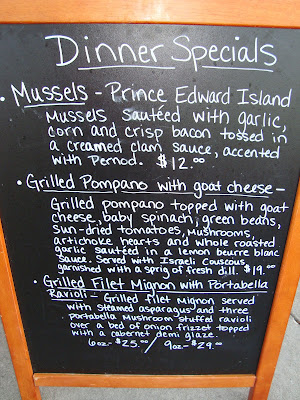 Dinner Specials
• Mussels - Prince Edward Island
Mussels sautéed with garlic,
corn and crisp bacon tossed in
a creamed clam sauce, accented
with Pernod. $12.00
• Grilled Pompano with goat cheese -
Grilled pompano topped with goat
cheese, baby spinach, green beans,
sun-dried tomatoes, mushrooms,
artichoke hearts and whole roasted
garlic sautéed in a lemon beurre blanc
sauce. Served with Israeli Couscous
garnished with a sprig of fresh dill. $19.00
• Grilled Filet Mignon with Portabella
Ravioli - Grilled filet Mignon served
with steamed asparagus and three
portabella Mushroom stuffed ravioli
over a bed of onion frizzet topped
with a cabernet demi glaze.
6oz - $25.00 / 9oz - $29.00